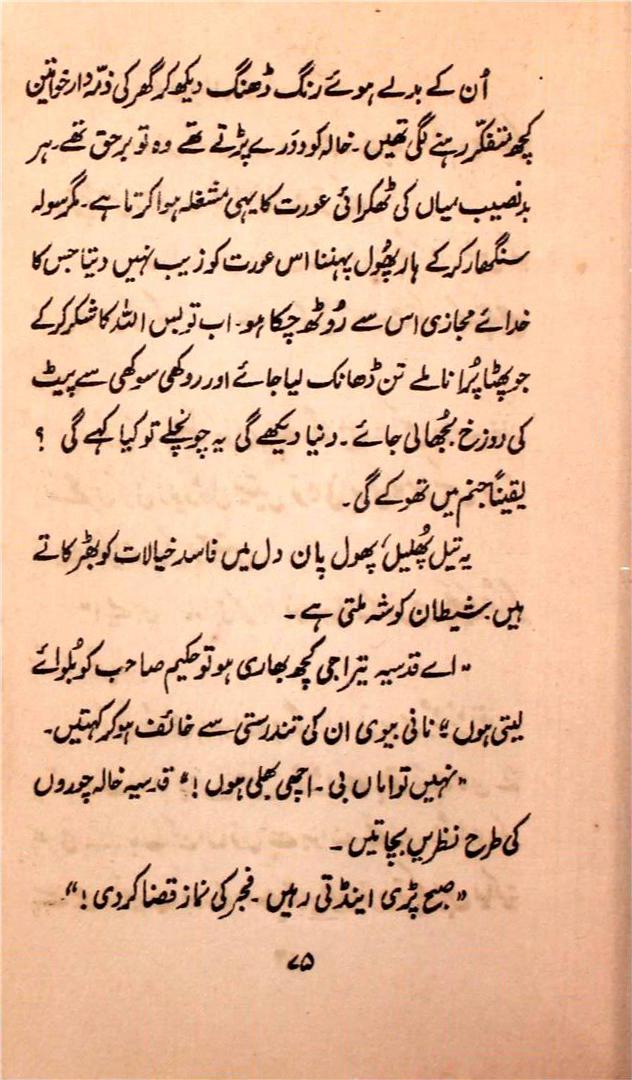 اُن کے بدلے ہوئے رنگ ڈھنگ دیکھ کر گھر کی ذمّہ دار خواتین
کچھ متفکّر رہنے لگی تھیں۔ خالہ کو دَورے پڑتے تھے وہ تو برحق تھے۔ ہر
بدنصیب میاں کی ٹھکرائی عورت کا یہی مشغلہ ہوا کرتا ہے۔ مگر سولہ
سنگھار کر کے ہار پھُول پہننا اس عورت کو زیب نہیں دیتا جس کا
خدائے مجازی اس سے رُوٹھ چکا ہو۔ اب تو بس اللہ کا شکر کر کے
جو پھٹا پُرانا ملے تن ڈھانک لیا جائے اور روکھی سوکھی سے پیٹ
کی دوزخ بُجھالی جائے۔ دنیا دیکھے گی یہ چونچلے تو کیا کہے گی ؟
یقیناً جنم میں تھوکے گی۔
یہ تیل پھُلیل، پھول پان دل میں فاسد خیالات کو بھڑکاتے
ہیں۔ شیطان کو شہ ملتی ہے۔
"اے قدسیہ تیرا جی کچھ بھاری ہو تو حکیم صاحب کو بُلوائے
لیتی ہوں" نانی بیوی ان کی تندرستی سے خائف ہو کر کہتیں۔
"نہیں تو اماں بی۔ اچھی بھلی ہوں!" قدسیہ خالہ چوروں
کی طرح نظریں بچاتیں۔
"صبح پڑی اینڈتی رہیں۔ فجر کی نماز قضا کر دی!"
۷۵